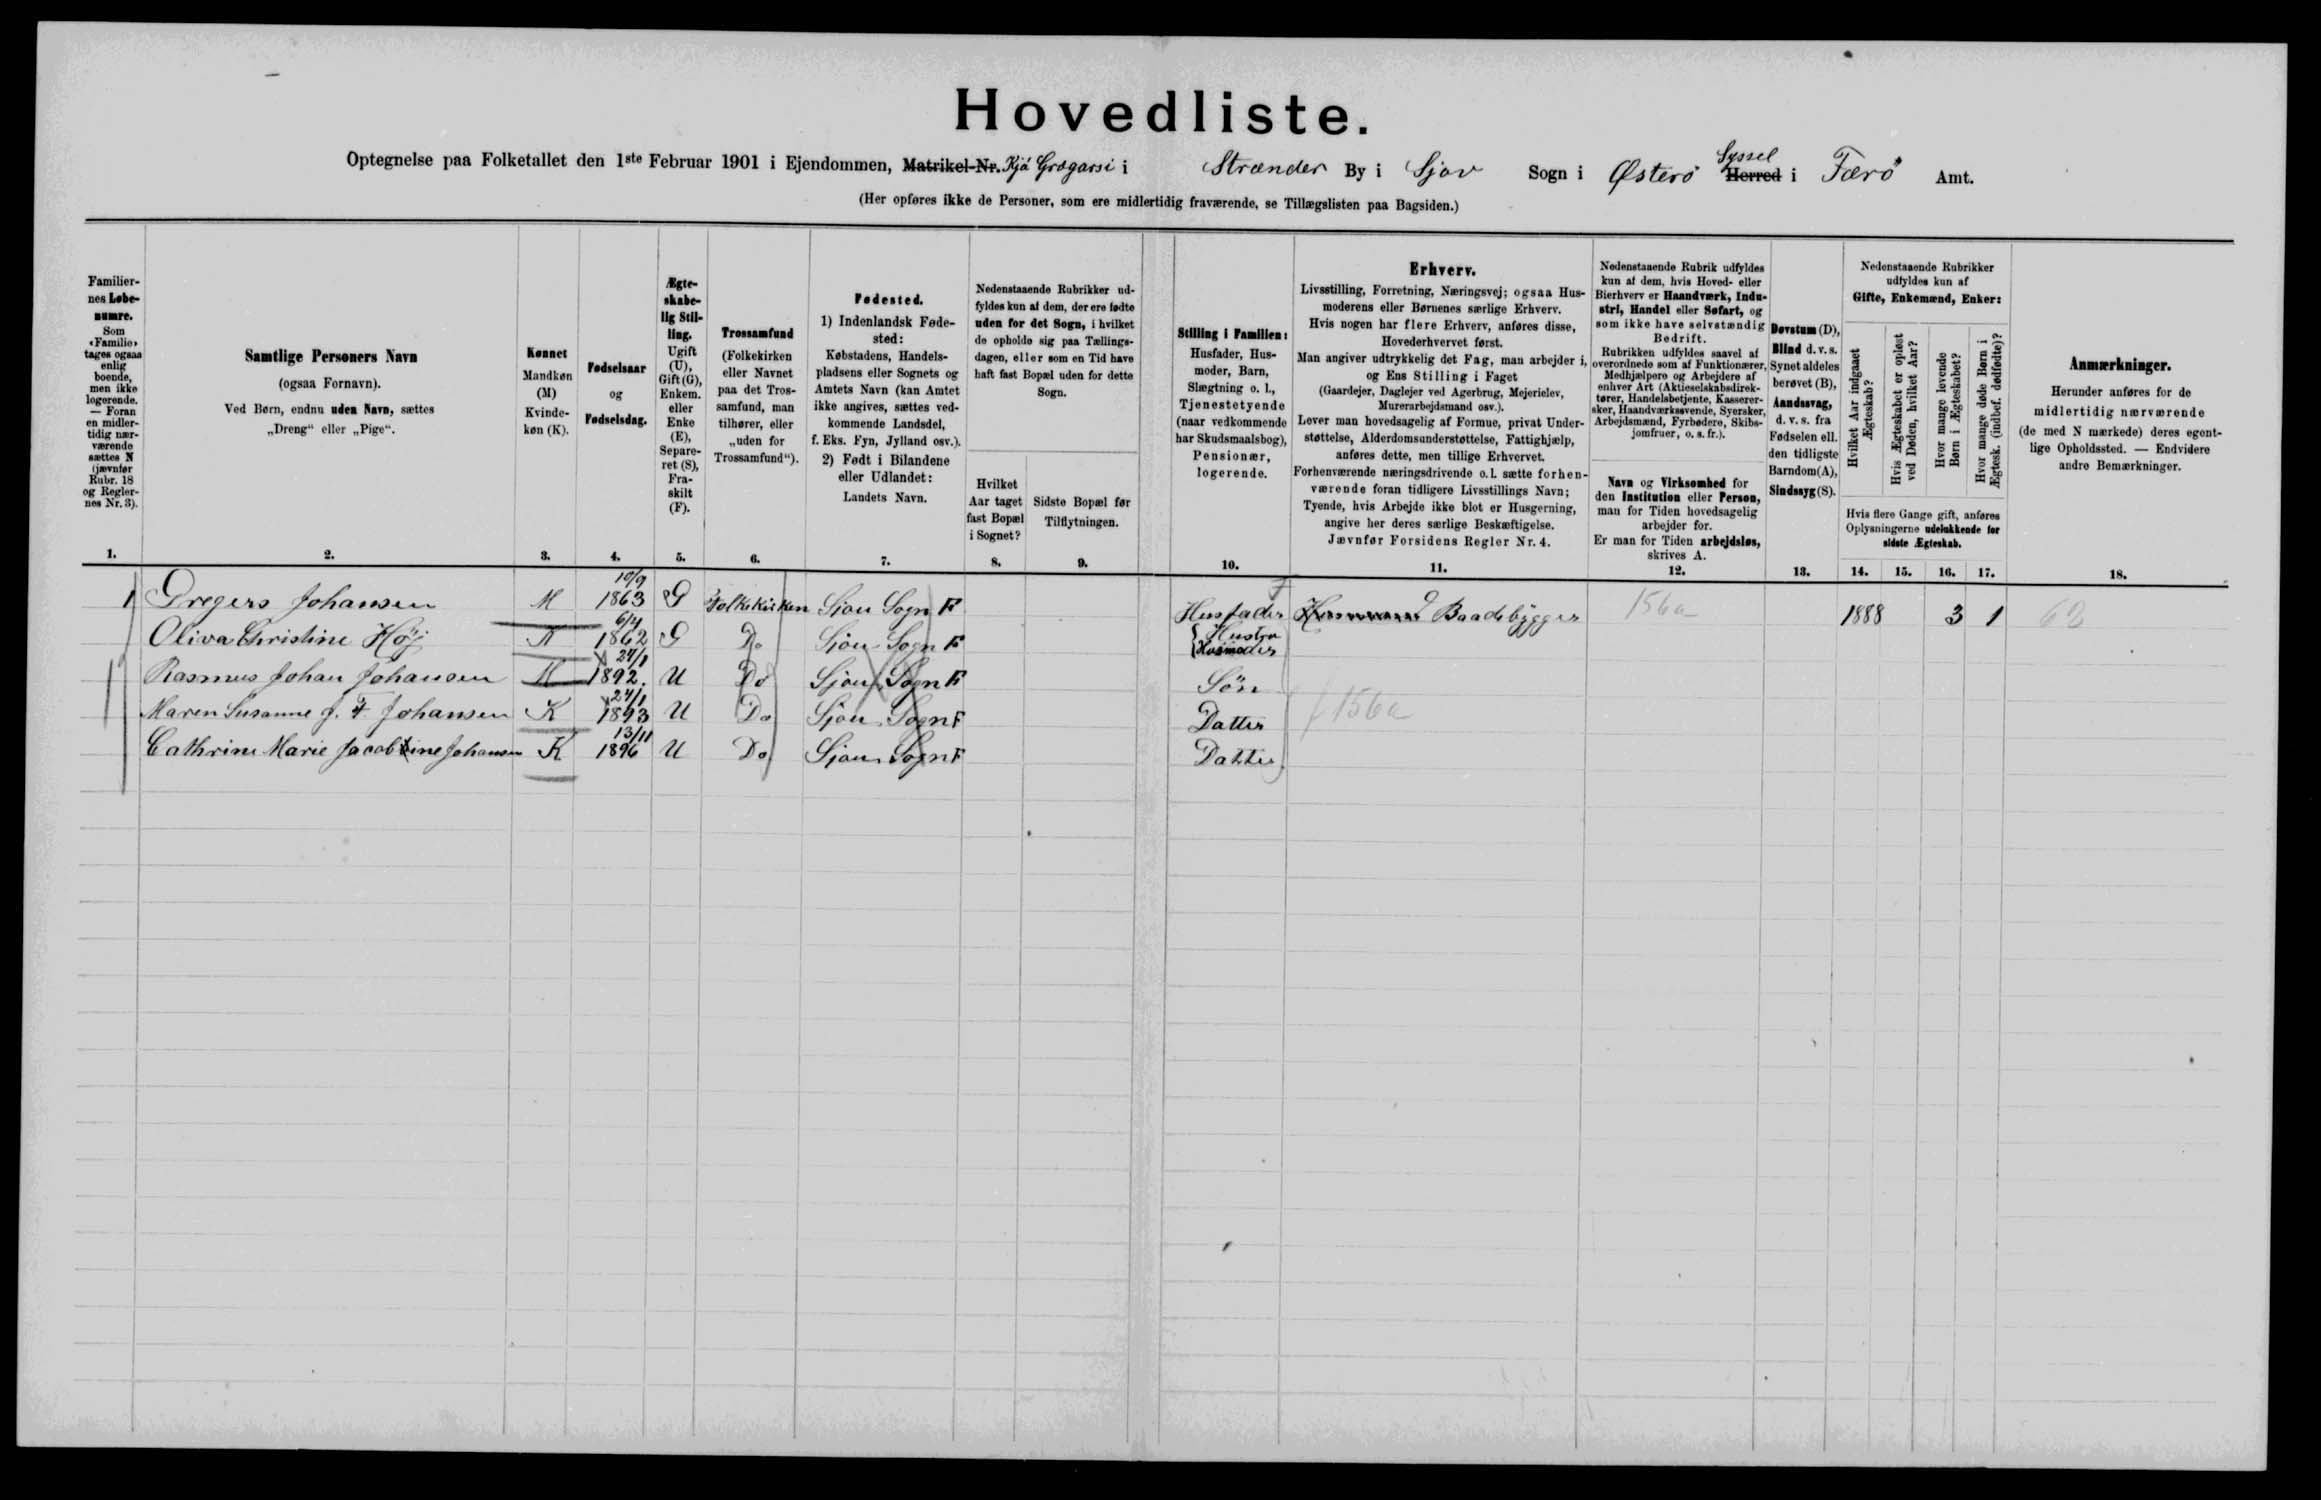 Hovedliste.
Optegnelse paa Folketallet den 1ste Februar 1901 i Ejendommen, Matrikel-Nr. Kjá Grægarsi i Strænder By i Sjov Sogn i Østerö Herred Syssel i Færö Amt.
(Her opføres ikke de Personer, som ere midlertidig fraværende, se Tillægslisten paa Bagsiden.)
Familiernes Løbenumre.
Som «Familie» tages ogsaa enlig boende, men ikke logerende. — Foran en midlertidig nærværende sættes N (jævnfør Rubr. 18 og Reglernes Nr. 3).
1.
Samtlige Personers Navn
(ogsaa Fornavn).
Ved Børn, endnu uden Navn, sættes
„Dreng“ eller „Pige“.
2.
Kønnet
Mandkøn (M)
Kvindekøn (K).
3.
Fødselsaar
og
Fødselsdag.
4.
Ægteskabelig Stilling.
Ugift (U), Gift (G), Enkem. eller Enke (E), Separeret (S), Fraskilt (F).
5.
Trossamfund
(Folkekirken eller Navnet paa det Trossamfund, man tilhører, eller „uden for Trossamfund“).
6.
Fødested.
1) Indenlandsk Fødested:
Købstadens, Handelspladsens eller Sognets og Amtets Navn (kan Amtet ikke angives, sættes vedkommende Landsdel, f. Eks. Fyn, Jylland osv.).
2) Født i Bilandene eller Udlandet:
Landets Navn.
7.
Nedenstaaende Rubrikker udfyldes kun af dem, der ere fødte uden for det Sogn, i hvilket de opholde sig paa Tællingsdagen, eller som en Tid have haft fast Bopæl uden for dette Sogn.
Hvilket Aar taget fast Bopæl i Sognet?
8.
Sidste Bopæl før Tilflytningen.
9.
Stilling i Familien:
Husfader, Husmoder, Barn, Slægtning o. l., Tjenestetyende (naar vedkommende har Skudsmaalsbog), Pensionær, logerende.
10.
Erhverv.
Livsstilling, Forretning, Næringsvej; ogsaa Husmoderens eller Børnenes særlige Erhverv.
Hvis nogen har flere Erhverv, anføres disse, Hovederhvervet først.
Man angiver udtrykkelig det Fag, man arbejder i, og Ens Stilling i Faget
(Gaardejer, Daglejer ved Agerbrug, Mejerielev, Murerarbejdsmand osv.).
Lever man hovedsagelig af Formue, privat Understøttelse, Alderdomsunderstøttelse, Fattighjælp, anføres dette, men tillige Erhvervet.
Forhenværende næringsdrivende o. l. sætte forhenværende foran tidligere Livsstillings Navn;
Tyende, hvis Arbejde ikke blot er Husgerning, angive her deres særlige Beskæftigelse.
Jævnfør Forsidens Regler Nr. 4.
11.
Nedenstaaende Rubrik udfyldes kun af dem, hvis Hoved- eller Bierhverv er Haandværk, Industri, Handel eller Søfart, og som ikke have selvstændig Bedrift.
Rubrikken udfyldes saavel af overordnede som af Funktionærer, Medhjælpere og Arbejdere af enhver Art (Aktieselskabsdirektører, Handelsbetjente, Kasserersker, Haandværkssvende, Syersker, Arbejdsmænd, Fyrbødere, Skibsjomfruer, o. s. fr.).
Navn og Virksomhed for den Institution eller Person, man for Tiden hovedsagelig arbejder for.
Er man for Tiden arbejdsløs, skrives A.
12.
Døvstum (D), Blind d. v. s. Synet aldeles berøvet (B), Aandssvag, d. v. s. fra Fødselen ell. den tidligste Barndom (A), Sindssyg (S).
13.
Nedenstaaende Rubrikker udfyldes kun af
Gifte, Enkemænd, Enker:
Hvilket Aar indgaaet Ægteskab?
Hvis Ægteskabet er opløst ved Døden, hvilket Aar?
Hvor mange levende Børn i Ægteskabet?
Hvor mange døde Børn i Ægtesk. (indbef. dødfødte)?
Hvis flere Gange gift, anføres Oplysningerne udelukkende for sidste Ægteskab.
14. 15. 16. 17.
Anmærkninger.
Herunder anføres for de midlertidig nærværende (de med N mærkede) deres egentlige Opholdssted. — Endvidere andre Bemærkninger.
18.
1 Gregers Johansen M 10/9 1863 G Folkekirken Sjou Sogn F Husfader Baadebygger 156a 1888 3 1 62
Oliva Christine Höj K 6/4 1862 G Do Sjou Sogn F Hustru Husmoder
Rasmus Johan Johansen M 24/1 1892. U Do Sjou Sogn F Sön
Maren Susanne J. F. Johansen K 24/1 1893 U Do Sjou Sogn F Datter 156a
Cathrine Marie Jacobine Johansen K 13/11 1896 U Do Sjou Sogn F Datter